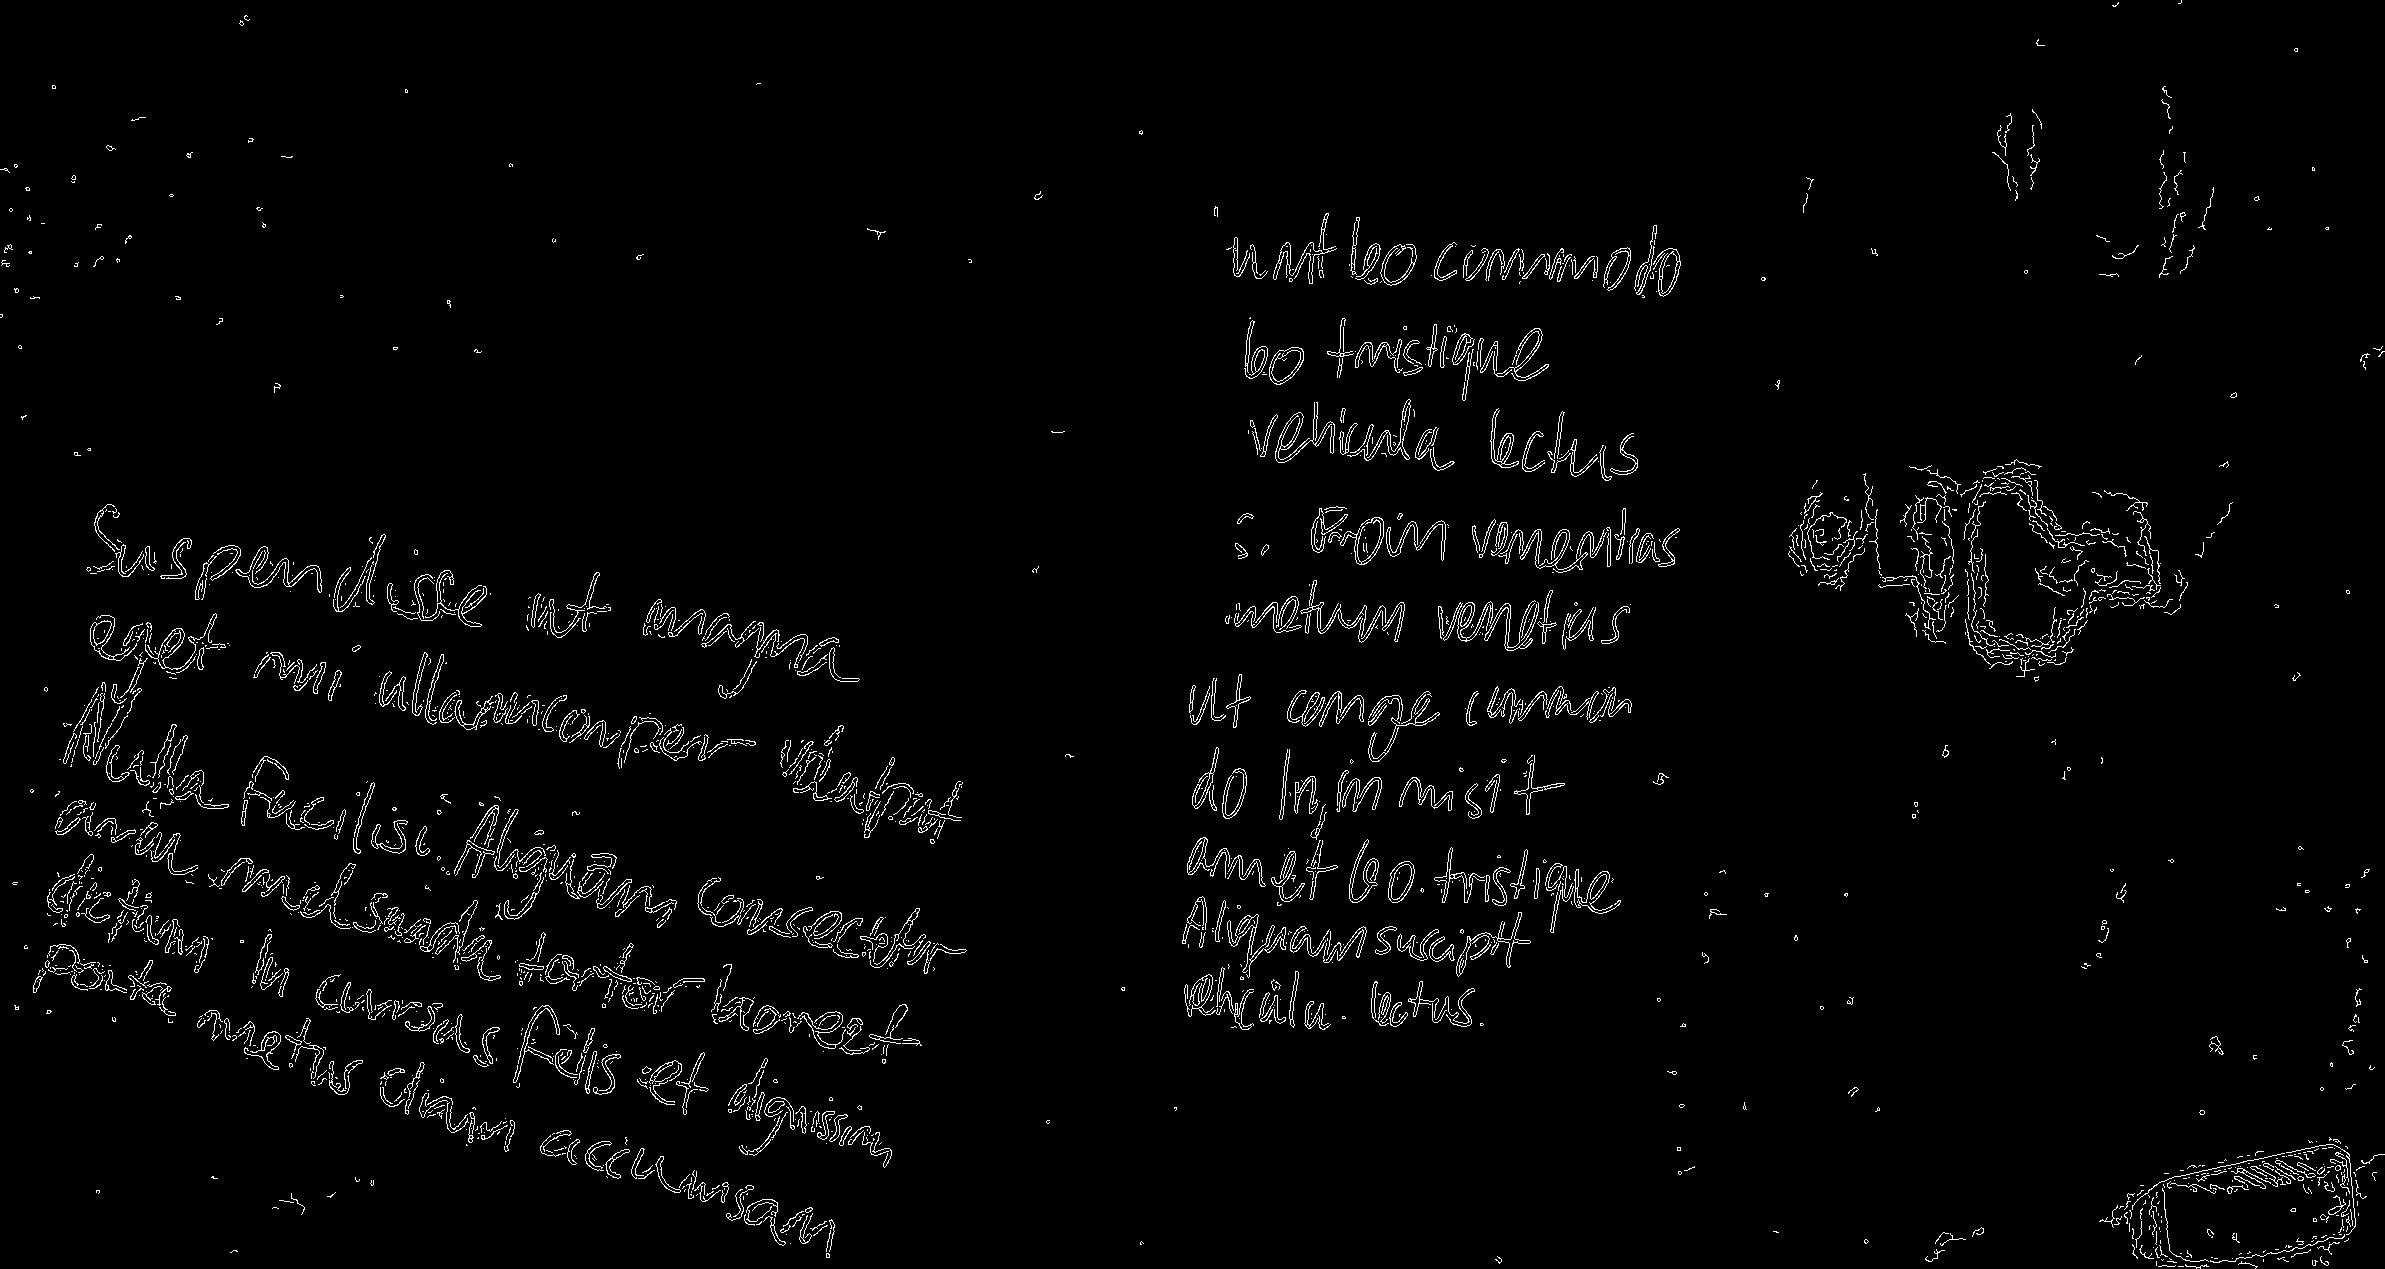 Suspendisse ut magna
eget mi ullamcorper volutpat
Nulla Facilisi. Aliquam consectetur
arcu malesuada tortor laoreet
dictum In cursus felis et dignissim
porta metus diam accumsan
unt leo commodo
leo tristique
vehicula lectus
s. Proin
metum
ut conge common
do In, in misi t
amet leo. tristique
Aliquam suscipit
vehicula. lectus.